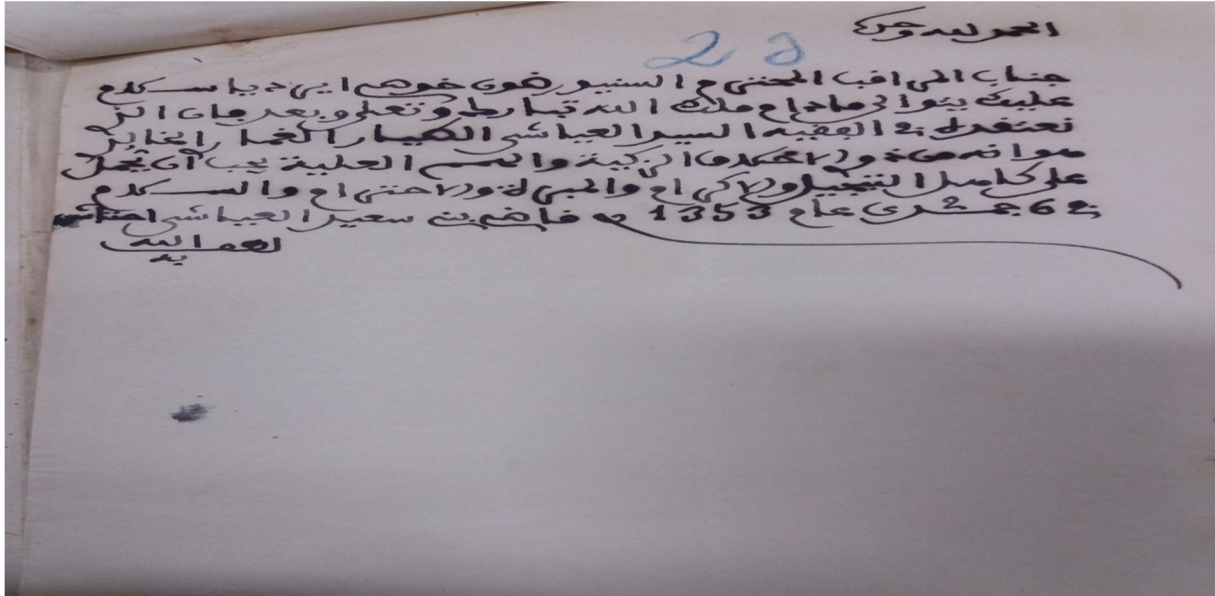 الحمد لله وحده
جناب المراقب المحترم السنيور ضون خوصي سلام
عليك يتوالى ما دام ملك الله تبارك وتعلى وبعد فان الذ
نعتقده في الفقيه السيد العياشي
هو انه من ذو الاخلاق الزكية والهمم العلية يجب أن يحمل
على كاهل التبجيل والاكرام والمبرة والاحترام والسلام
في 6 عام 1353 قاضي بني سعيد العياشي
لطف الله به